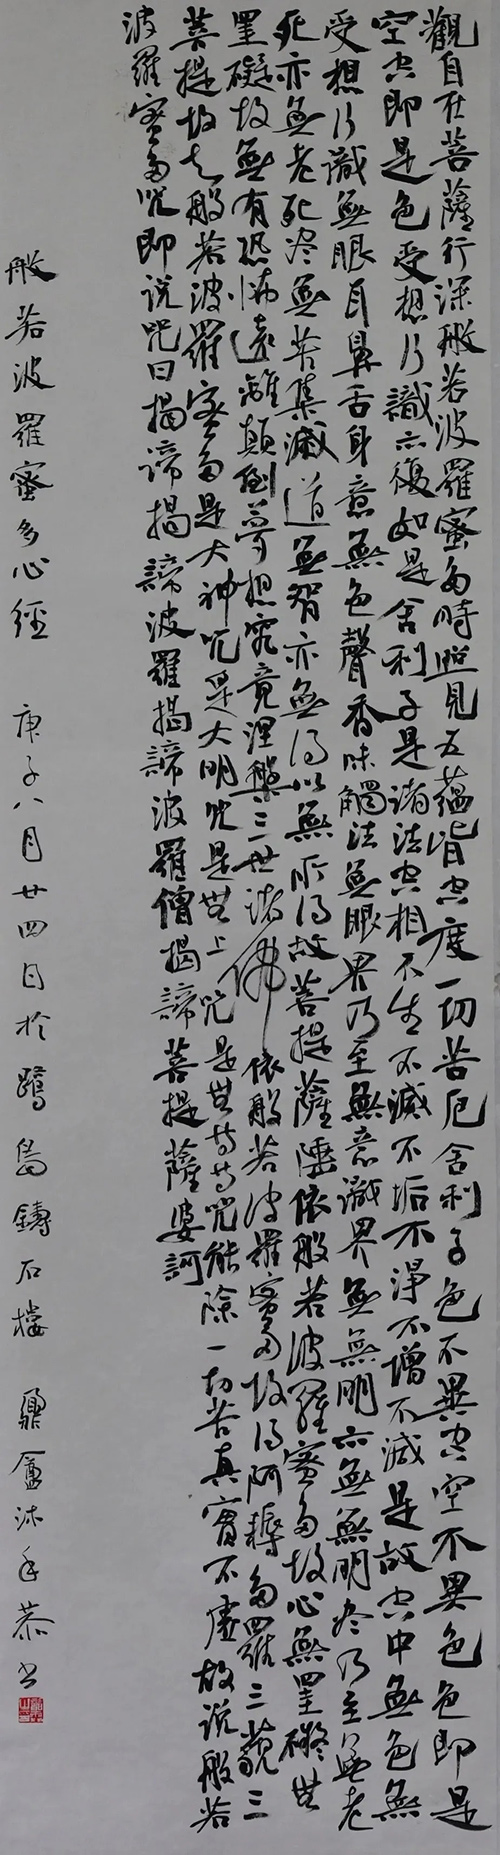 觀自在菩薩行深般若波羅蜜多時照見五蘊皆空度一切苦厄舍利子色不異空空不異色色即是
空空即是色受想行識亦復如是舍利子是諸法空相不生不滅不垢不淨不增不減是故空中無色無
受想行識無眼耳鼻舌身意無色聲香味觸法無眼界乃至無意識界無無明亦無無明尽乃至無老
死亦無老死尽無苦集滅道無智亦無得以無所得故菩提薩埵依般若波羅蜜多故心無罣礙無
罣礙故無有恐怖遠離顛倒夢想究竟涅槃三世諸佛依般若波羅蜜多故得阿耨多羅三藐三
菩提故知般若波羅蜜多是大神咒是大明咒是無上咒是無等等咒能除一切苦真實不虛故說般若
波羅蜜多咒即說咒曰揭諦揭諦波羅揭諦波羅僧揭諦菩提薩婆訶
般若波羅蜜多心經 庚子八月廿四日於鷺島鑄石樓 鼎廬沐手恭書